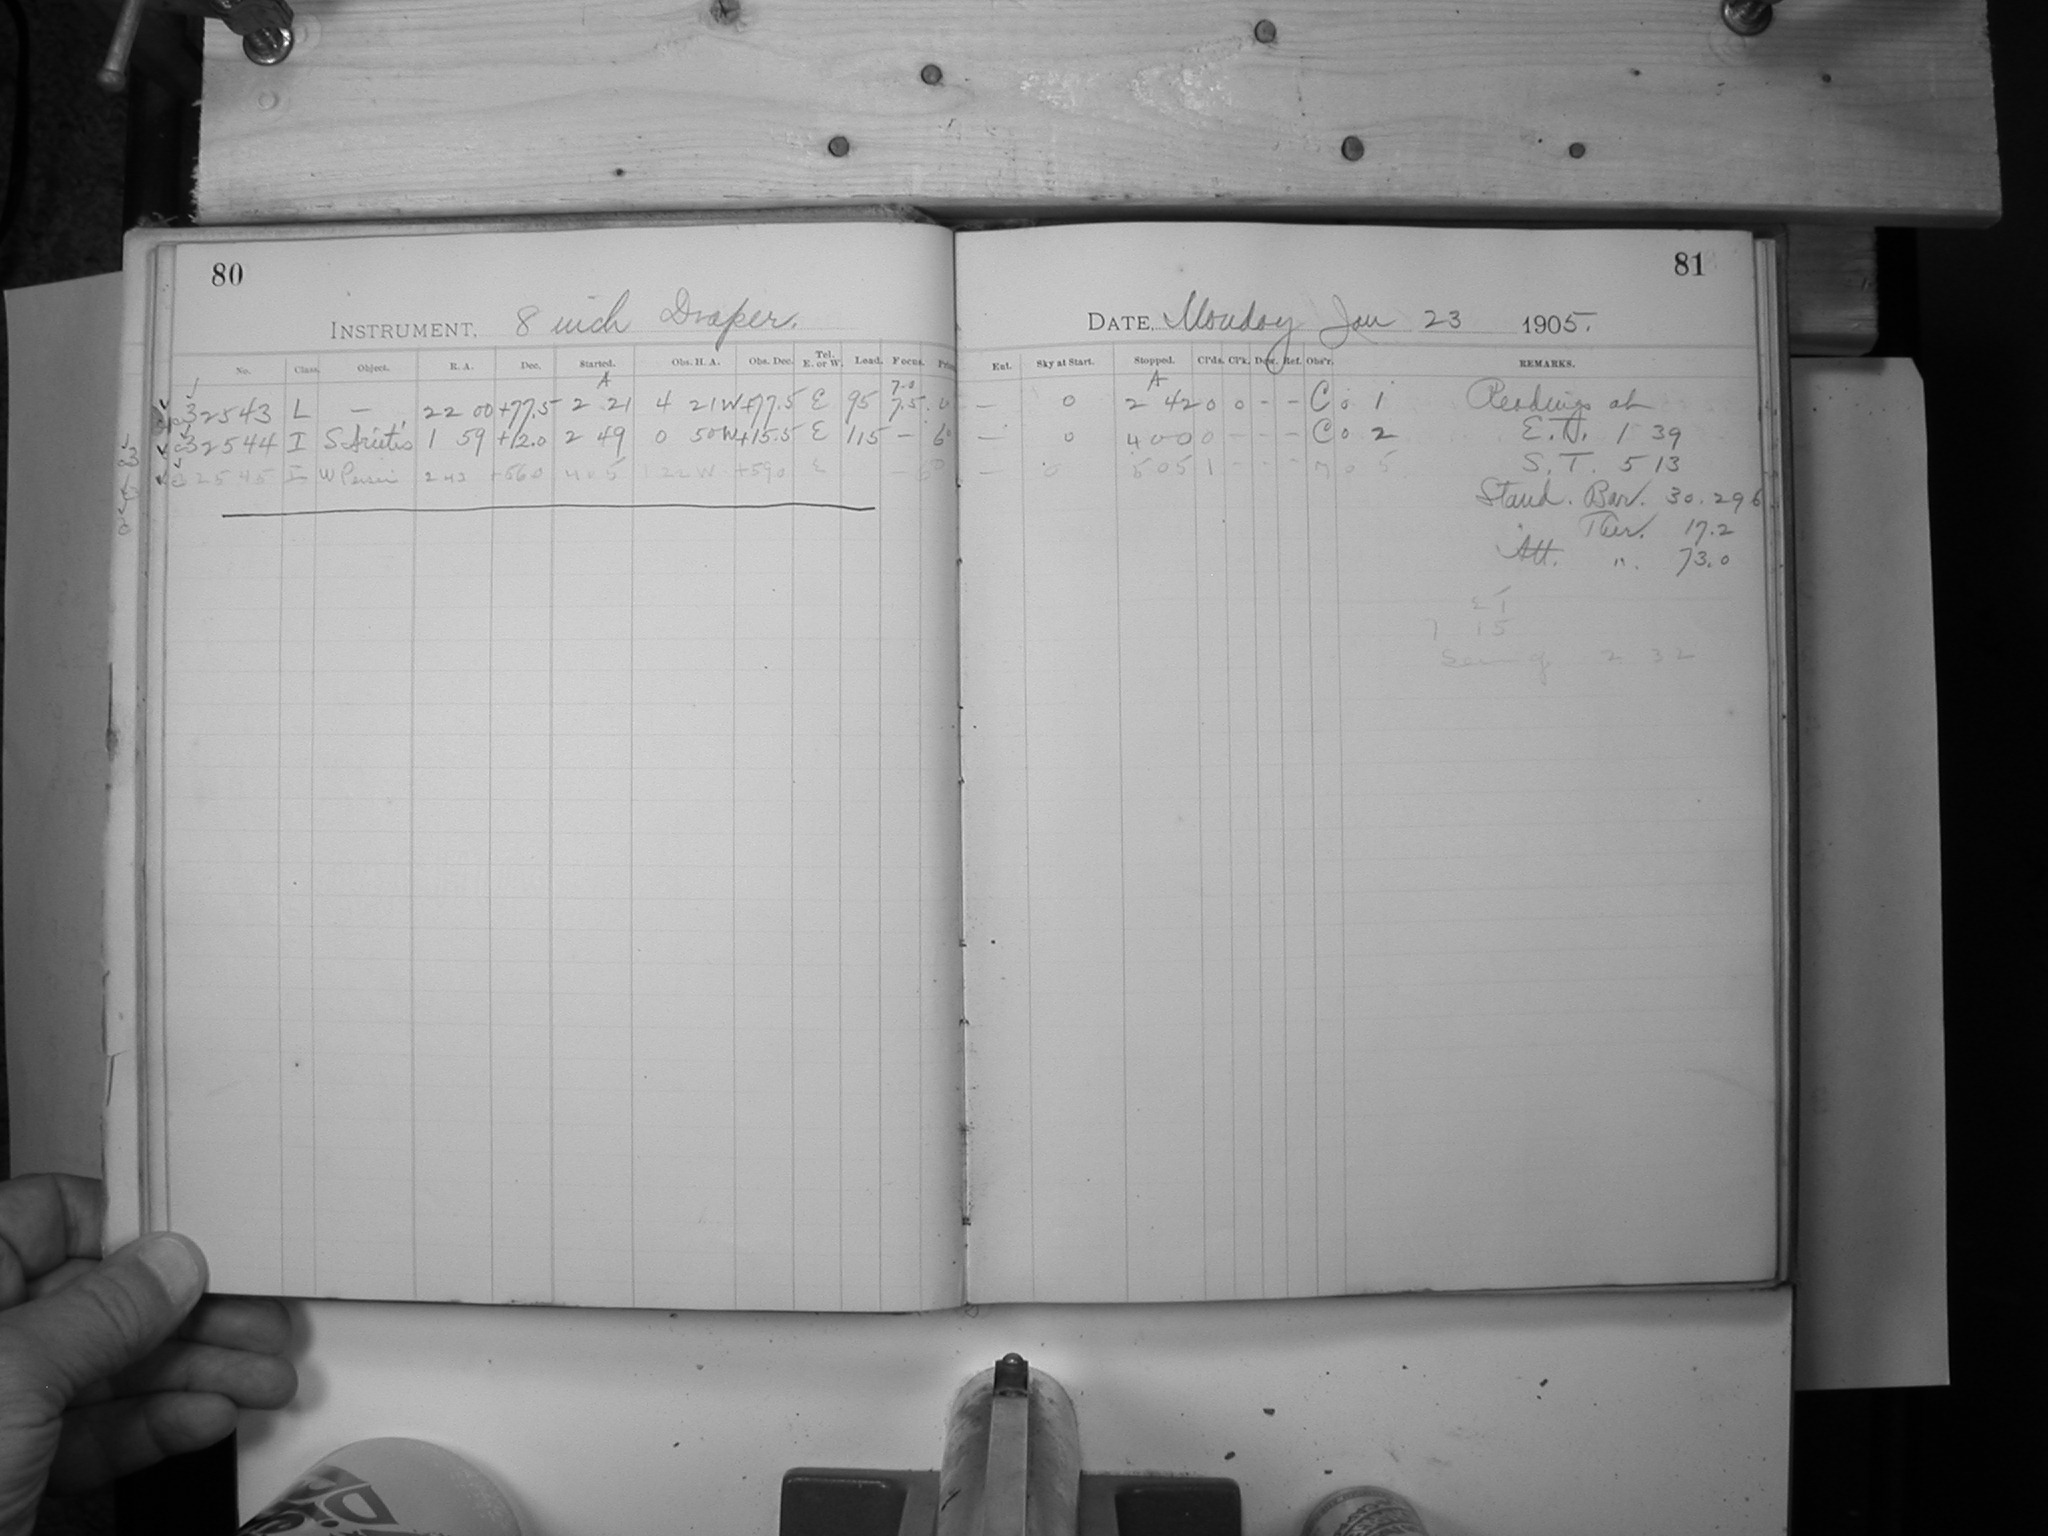 80
INSTRUMENT. 8 inch Draper.
No. Class. Object. R. A. Dec. Started. Obs. H. A. Obs. Dec. Tel. E. or W. Lead. Focus.
A 7.0
32543 L — 22 00 +77.5 2 21 4 21W +77.5 E 95 7.5
32544 I S Arietis 1 59 +12.0 2 49 0 50W +15.5 E 115 — 60
32545 I W Persei 2 43 +560 4 05 1 22 W +590 E —
81
DATE, Monday Jan 23 1905.
Ent. Sky at Start. Stopped. Cl'ds. Cl'k. Dew. Ref. Obs'r. REMARKS.
A
— 0 2 42 0 0 - - C 0 1 Readings at
— 0 4 00 0 - - - C 0 2 E.N. 1 39
— 0 5 05 1 - - - 0 5 S.T. 5 13
Stand. Bar. 30.296
Ther. 17.2
Att. ". 73.0
21
7 15
2 32